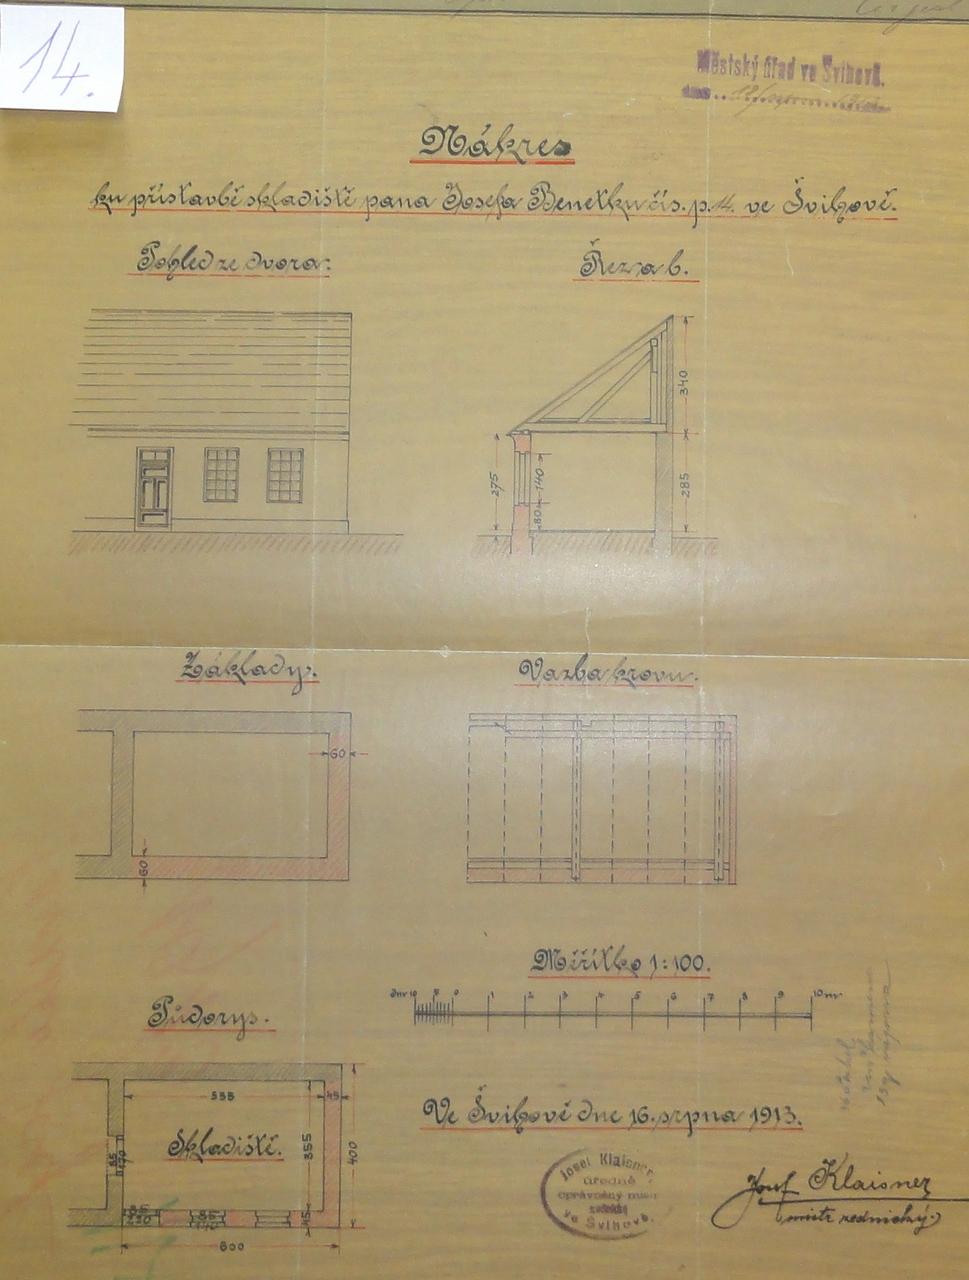 14.
Městský úřad ve Švihově.
Nákres
ku přístavbě skladiště pana Josefa Benetku čís. p. 14. ve Švihově.
Pohled ze dvora:
Řez a b.
340
275
140
80
285
Základy.
Vazba krovu.
60
60
Měřítko 1:100.
dm 10 5 0 1 2 3 4 5 6 7 8 9 10 m
Půdorys.
555
45
Skladiště.
355
400
85
85
220
85
140
45
600
Ve Švihově dne 16. srpna 1913.
Josef Klaisner
úředně
oprávněný mistr
zednický
ve Švihově.
Josef Klaisner
mistr zednický